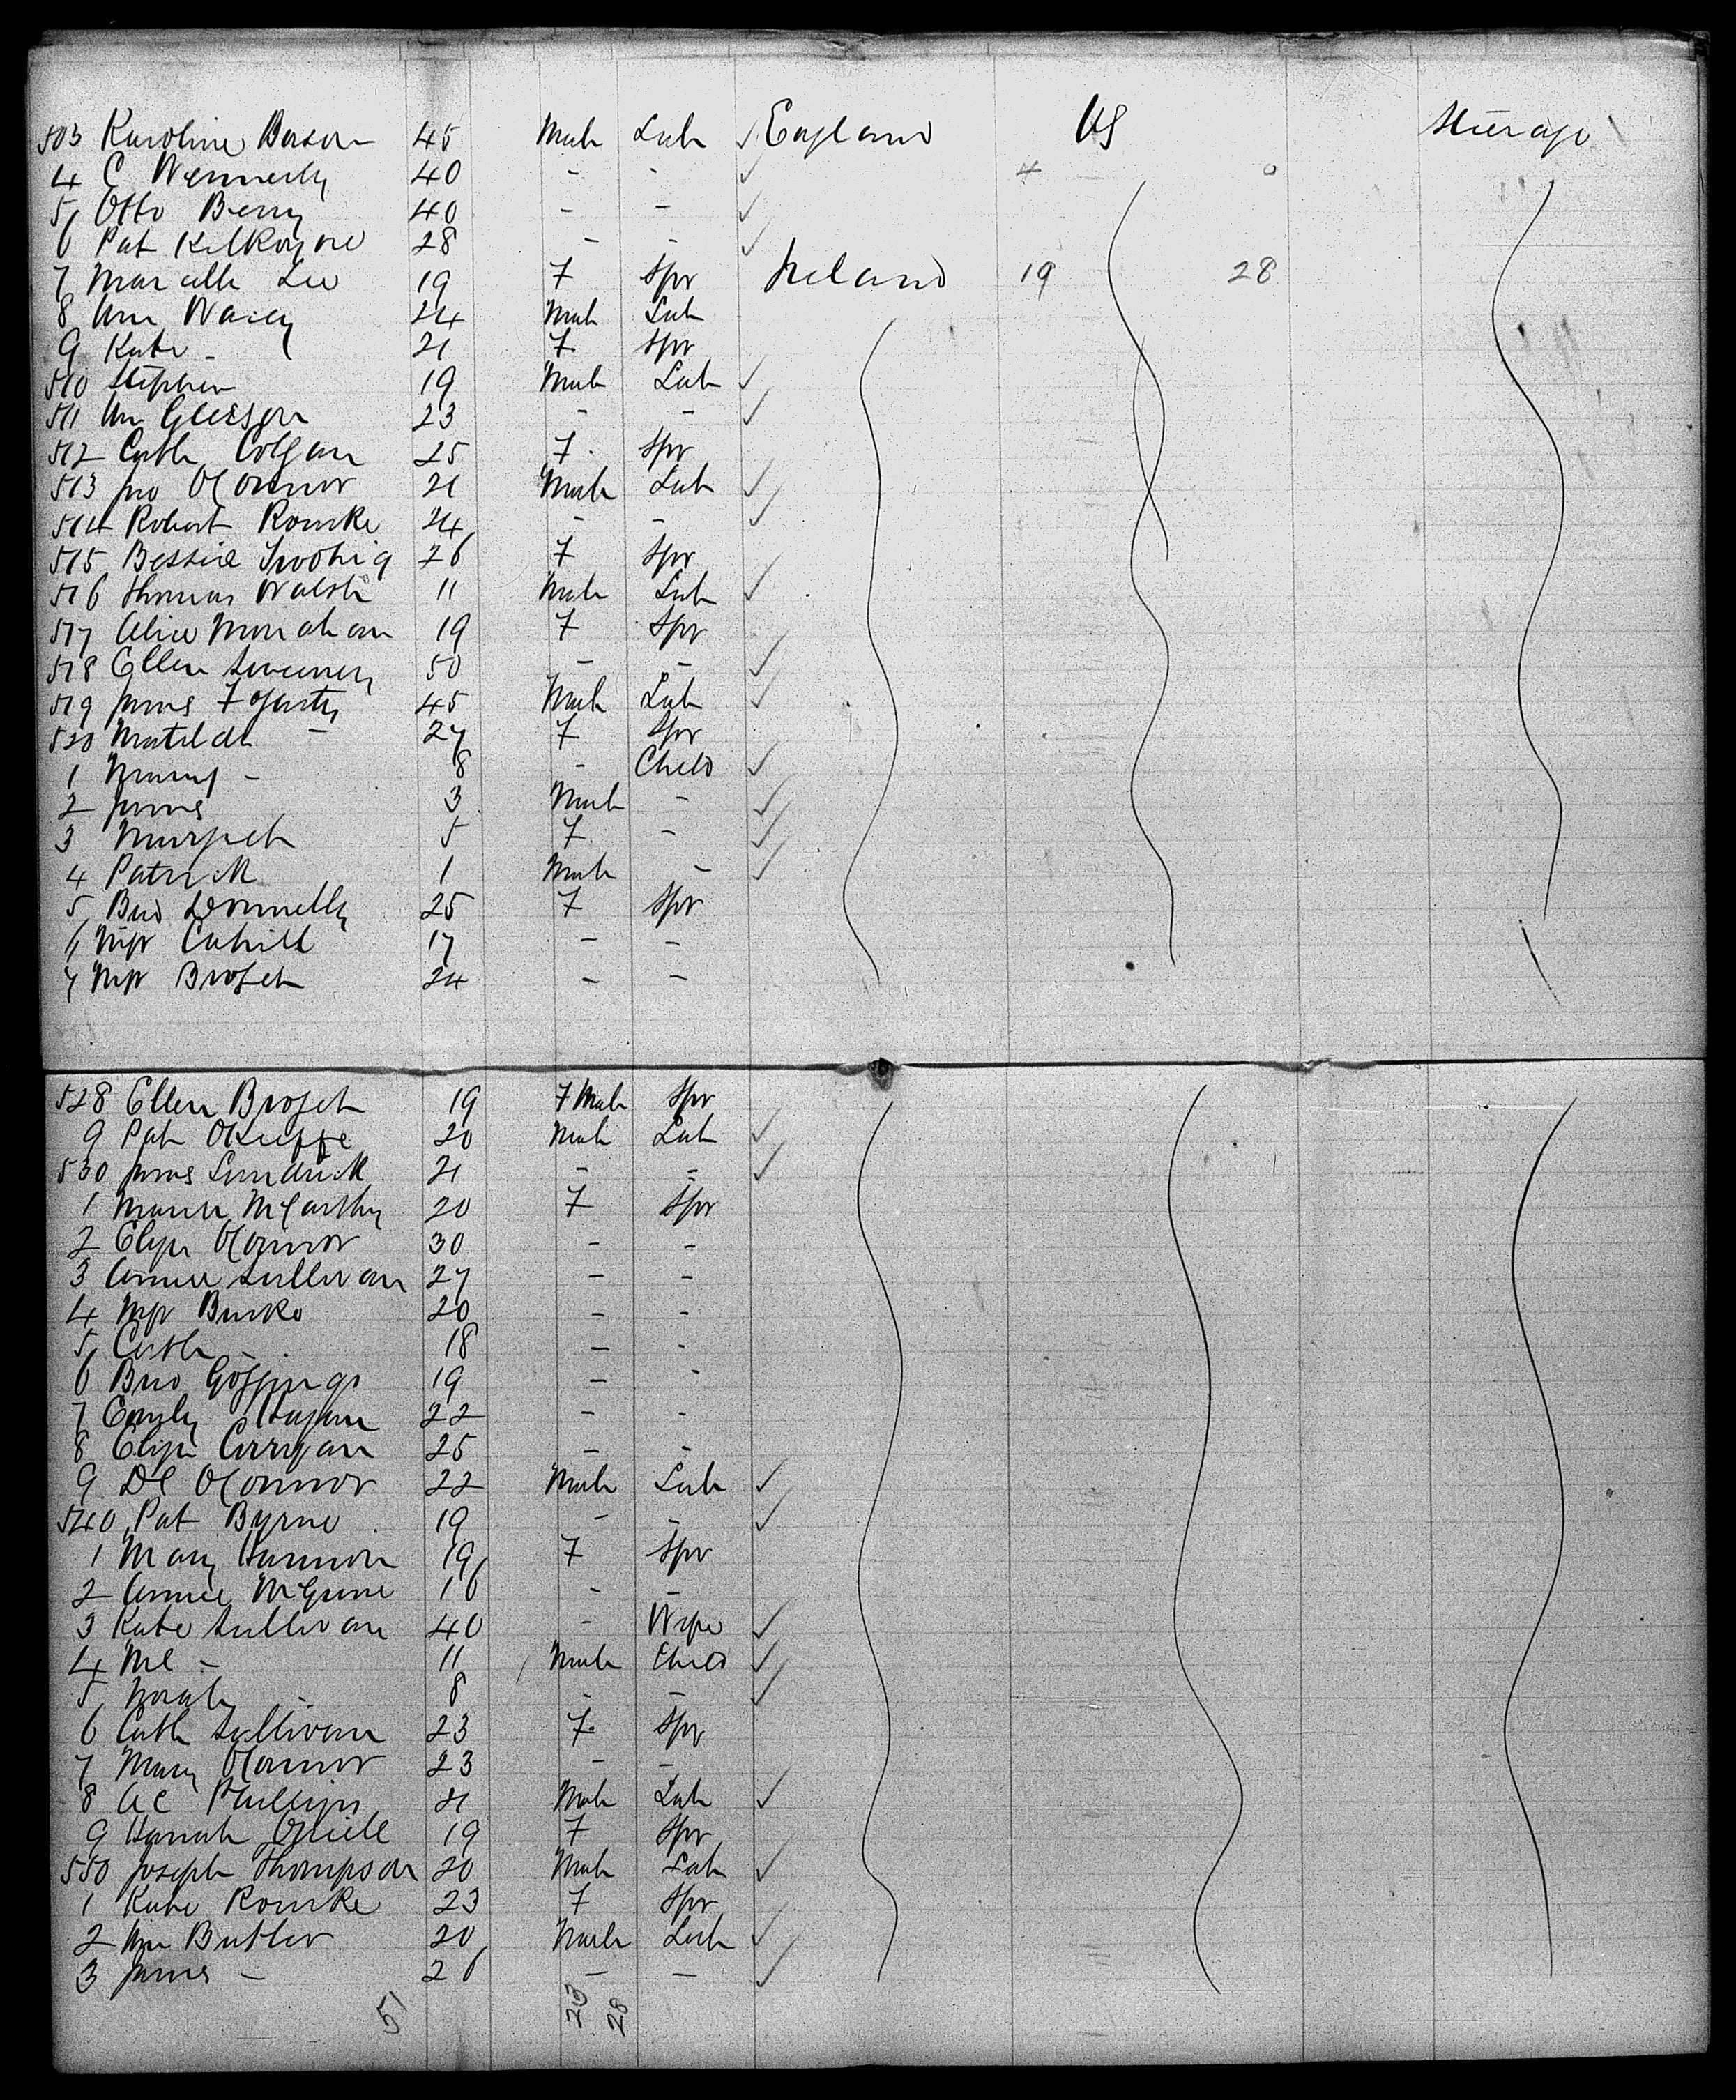 503 Karoline Bason 45 Male Lab ✓ England US Steerage
4 C Wennerly 40 - - ✓ 4 0
5 Otto Berry 40 - - ✓
6 Pat Kilkoyne 28 - - ✓
7 Marcella Lee 19 F Spr Ireland 19 28
8 Wm Wacey 24 Male Lab
9 Kate - 21 F Spr
510 Stephen 19 Male Lab ✓
511 Wm Gleeson 23 - - ✓
512 Cath Colgan 25 F Spr
513 Jno OConnor 21 Male Lab ✓
514 Robert Rourke 24 - - ✓
515 Bessie Twohig 26 F Spr
516 Thomas Walsh 11 Male Lab ✓
517 Alice Monahan 19 F Spr
518 Ellen Sweeney 50 - - ✓
519 James Fogarty 45 Male Lab ✓
520 Matilda - 27 F Spr
1 - 8 - Child ✓
2 James 3 Male - ✓
3 Margret 5 F - ✓
4 Patrick 1 Male - ✓
5 Brid Donnelly 25 F Spr
6 Mgt Cahill 17 - -
7 Mgt Brofet 24 - -
528 Ellen Brofet 19 F Male Spr
9 Pat OKeeffe 20 Male Lab ✓
530 James Lundrick 21 - - ✓
1 McCarthy 20 F Spr
2 Eliza OConnor 30 - -
3 Annie Sullivan 27 - -
4 Mgt Burke 20 - -
5 Cath - 18 - -
6 Brid Goggings 19 - -
7 Emily Hagan 22 - -
8 Eliza Corrigan 25 - -
9 Dl OConnor 22 Male Lab ✓
540 Pat Byrne 19 - - ✓
1 Mary Hannon 19 F Spr
2 Annie McGuire 16 - -
3 Kate Sullivan 40 - Wife ✓
4 Ml - 11 Male Child ✓
5 Norah - 8 - - ✓
6 Cath Sullivan 23 F Spr
7 Mary OConnor 23 - -
8 AC Phillips 21 Male Lab ✓
9 Hanah ONeill 19 F Spr
550 Joseph Thompson 20 Male Lab ✓
1 Kate Rourke 23 F Spr
2 Wm Butler 20 Male Lab ✓
3 James - 26 - - ✓
51 23 28